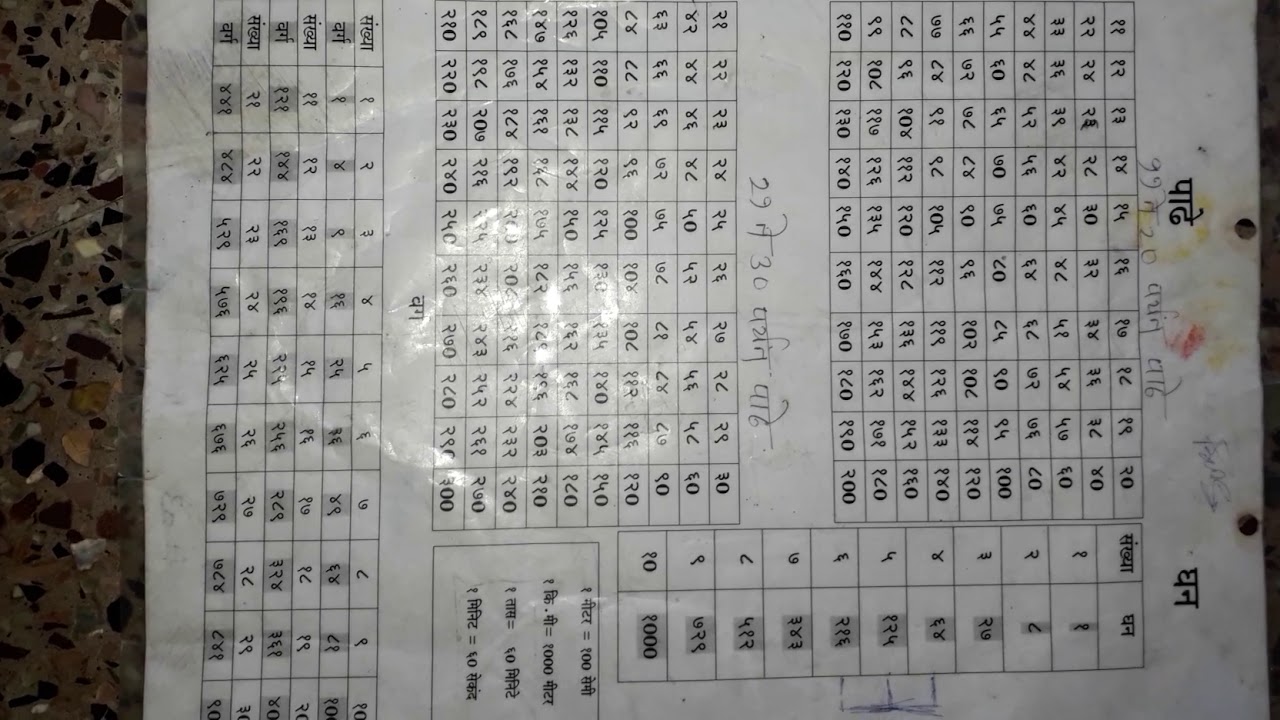 पाढे
११ ते २० पर्यंत पाढे
११ १२ १३ १४ १५ १६ १७ १८ १९ २०
२२ २४ २६ २८ ३० ३२ ३४ ३६ ३८ ४०
३३ ३६ ३९ ४२ ४५ ४८ ५१ ५४ ५७ ६०
४४ ४८ ५२ ५६ ६० ६४ ६८ ७२ ७६ ८०
५५ ६० ६५ ७० ७५ ८० ८५ ९० ९५ १००
६६ ७२ ७८ ८४ ९० ९६ १०२ १०८ ११४ १२०
७७ ८४ ९१ ९८ १०५ ११२ ११९ १२६ १३३ १४०
८८ ९६ १०४ ११२ १२० १२८ १३६ १४४ १५२ १६०
९९ १०८ ११७ १२६ १३५ १४४ १५३ १६२ १७१ १८०
११० १२० १३० १४० १५० १६० १७० १८० १९० २००
२१ ते ३० पर्यंत पाढे
२१ २२ २३ २४ २५ २६ २७ २८ २९ ३०
४२ ४४ ४६ ४८ ५० ५२ ५४ ५६ ५८ ६०
६३ ६६ ६९ ७२ ७५ ७८ ८१ ८४ ८७ ९०
८४ ८८ ९२ ९६ १०० १०४ १०८ ११२ ११६ १२०
१०५ ११० ११५ १२० १२५ १३० १३५ १४० १४५ १५०
१२६ १३२ १३८ १४४ १५० १५६ १६२ १६८ १७४ १८०
१४७ १५४ १६१ १६८ १७५ १८२ १८९ १९६ २०३ २१०
१६८ १७६ १८४ १९२ २०० २०८ २१६ २२४ २३२ २४०
१८९ १९८ २०७ २१६ २२५ २३४ २४३ २५२ २६१ २७०
२१० २२० २३० २४० २५० २६० २७० २८० २९० ३००
वर्ग
संख्या १ २ ३ ४ ५ ६ ७ ८ ९ १०
वर्ग १ ४ ९ १६ २५ ३६ ४९ ६४ ८१ १००
संख्या ११ १२ १३ १४ १५ १६ १७ १८ १९ २०
वर्ग १२१ १४४ १६९ १९६ २२५ २५६ २८९ ३२४ ३६१ ४०
संख्या २१ २२ २३ २४ २५ २६ २७ २८ २९ ३०
वर्ग ४४१ ४८४ ५२९ ५७६ ६२५ ६७६ ७२९ ७८४ ८४१ ९०
घन
संख्या घन
१ १
२ ८
३ २७
४ ६४
५ १२५
६ २१६
७ ३४३
८ ५१२
९ ७२९
१० १०००
१ मीटर = १०० सेमी
१ कि.मी = १००० मीटर
१ तास= ६० मिनिटे
१ मिनिट = ६० सेकंद